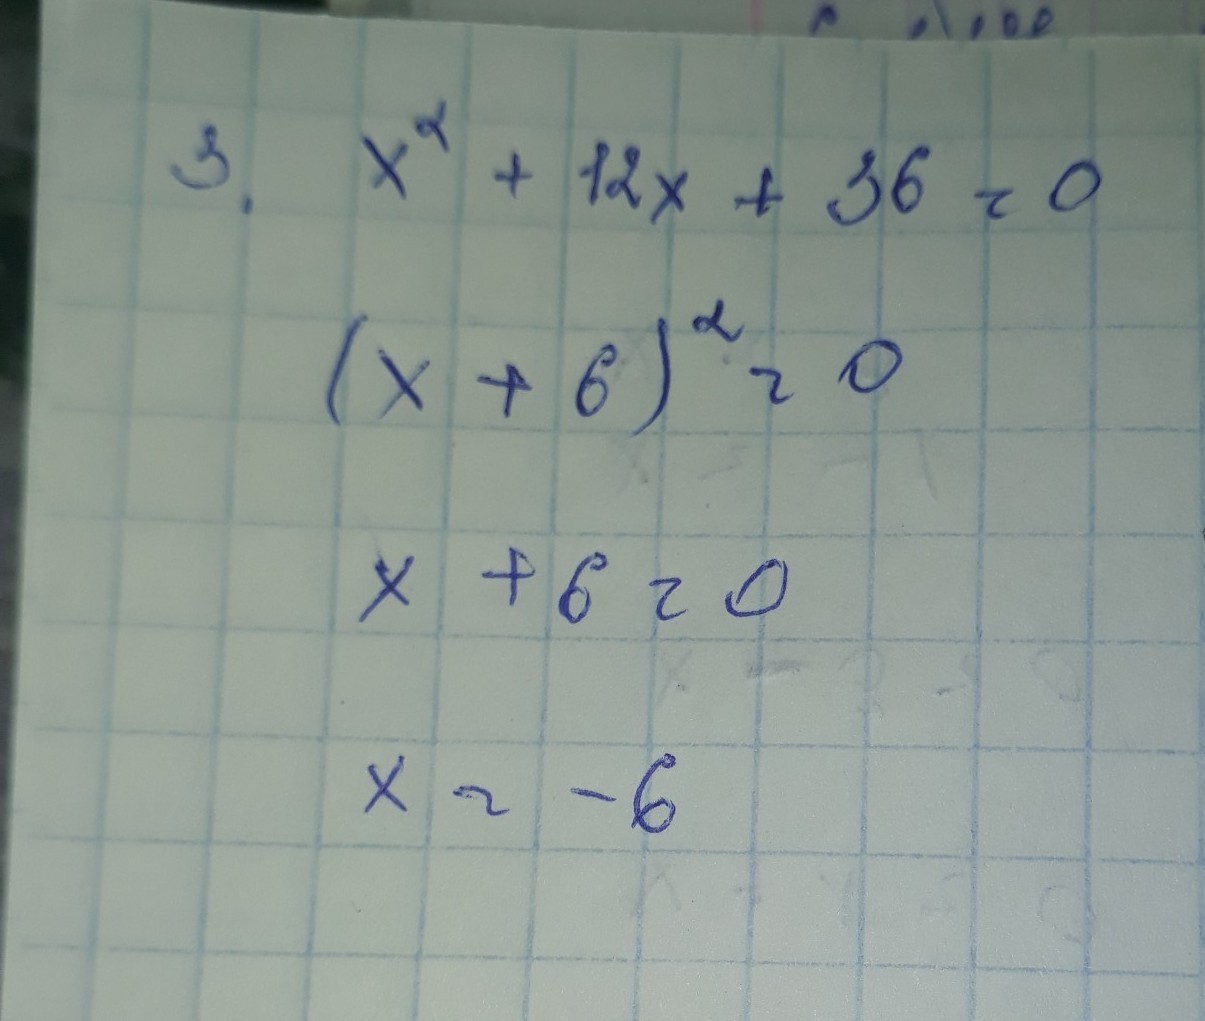 3. x² + 12x + 36 = 0
(x + 6)² = 0
x + 6 = 0
x = -6